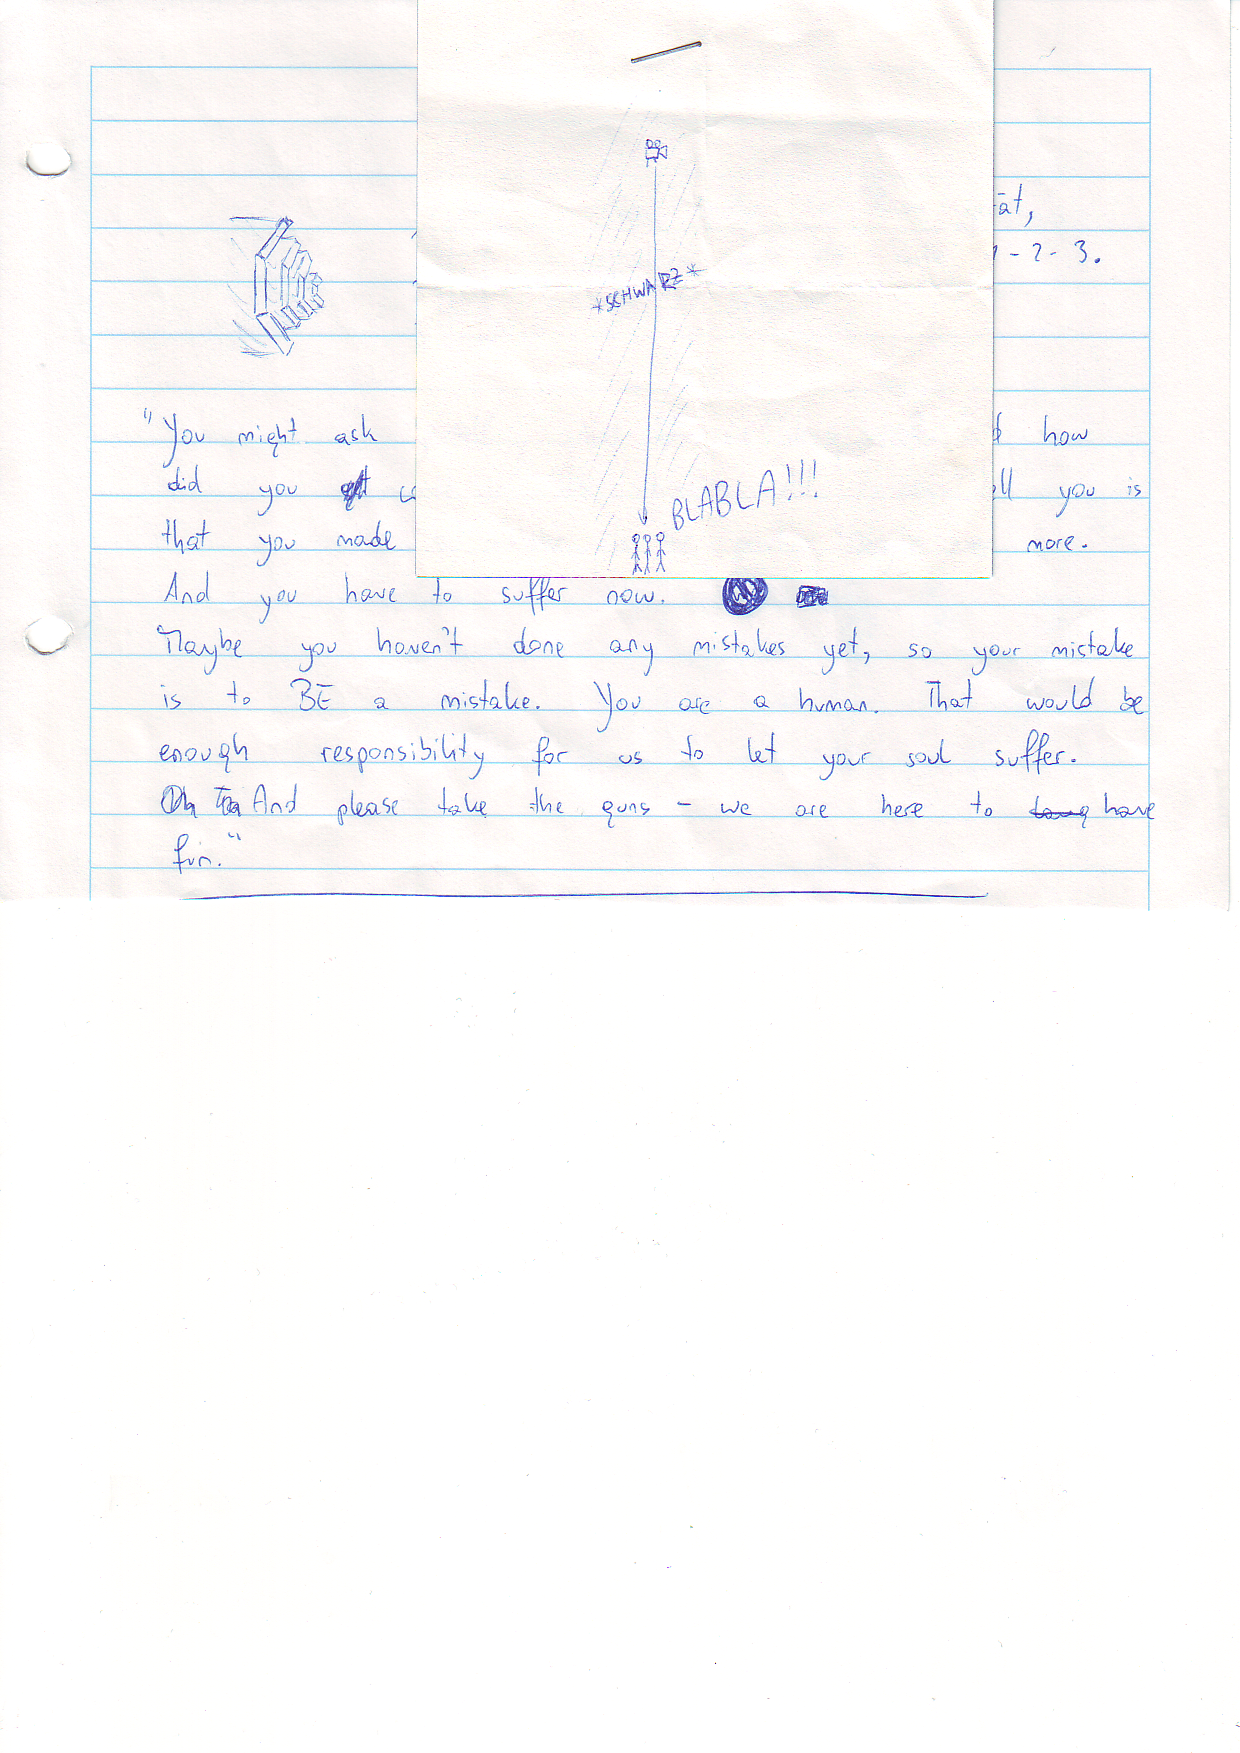 ät,
- 2 - 3.
*SCHWARZ*
BLABLA!!!
"You might ask how
did you you is
that you made more.
And you have to suffer now.
Maybe you haven't done any mistakes yet, so your mistake
is to BE a mistake. You are a human. That would be
enough responsibility for us to let your soul suffer.
And please take the guns – we are here to have
fun."